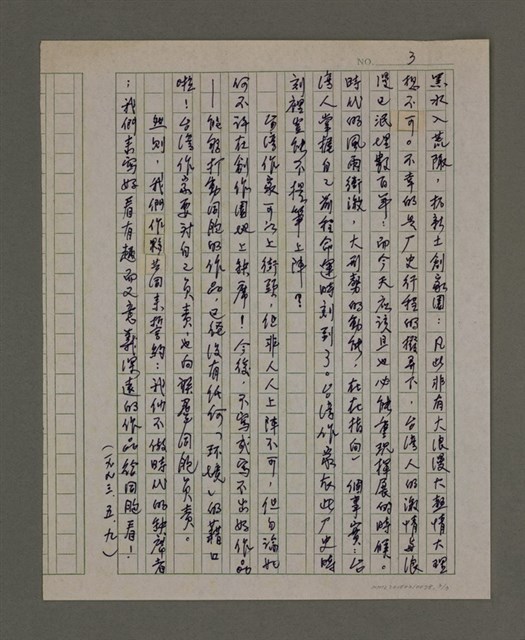 NO. 3
黑水入荒陬,拓新土創家園:凡此非有大浪漫大熱情大理
想不可。不幸的是歷史行程的撥弄下,台灣人的激情與浪
漫已泯埋數百年;而今天應該且也必能重現揮展的時候。
時代的風雨衝激,大形勢的動能,在在指向一個事實:台
灣人掌握自己前程命運時刻到了。台灣作家在此歷史時
刻裡豈能不提筆上陣?
台灣作家可以上街頭,但非人人上陣不可,但勿論如
何不許在創作園地上缺席!今後,不寫或寫不出好作品
——能夠打動同胞的作品,已經沒有任何「環境」的藉口
啦!台灣作家要對自己負責,也向眾同胞負責。
然則,我們作夥共同來誓約:我們不做時代的缺席者
;我們來寫好看有趣而又意義深遠的作品給同胞看!
(一九九三.五.九)